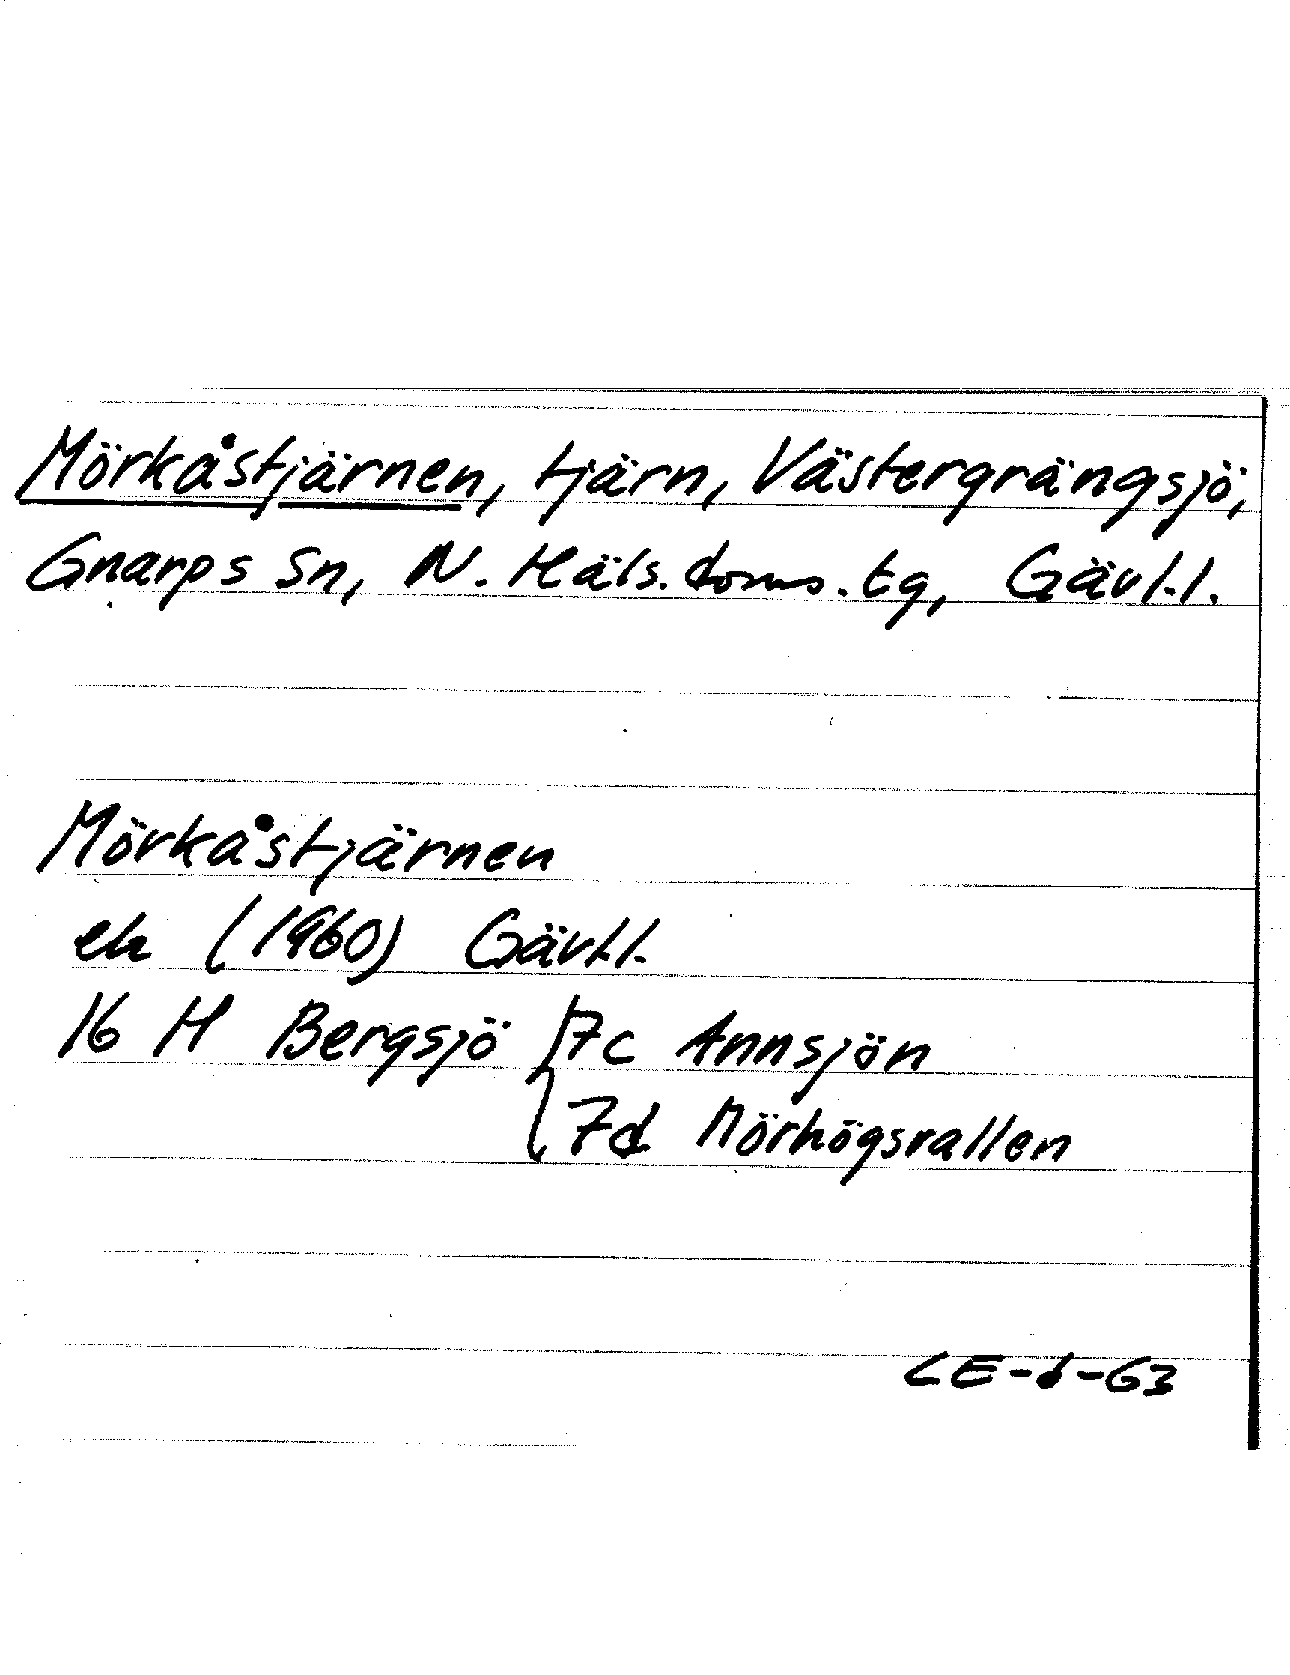 Mörkåstjärnen, tjärn, Västergrängsjö,
Gnarps sn, N. Häls. doms. tg, Gävl.l.
Mörkåstjärnen
ek (1960) Gävl.l.
16 H Bergsjö { 7c Annsjön
7d Mörhögsvallen
LE-d-63